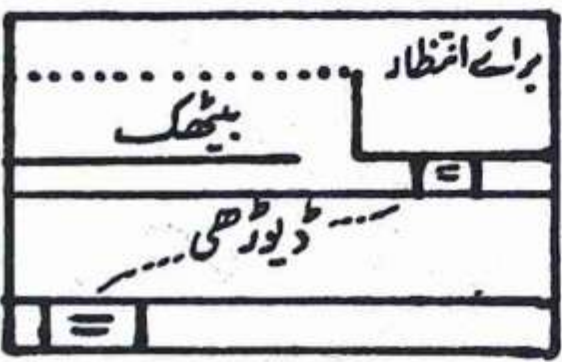 برائے انتظار
بیٹھک
ڈیوڑھی